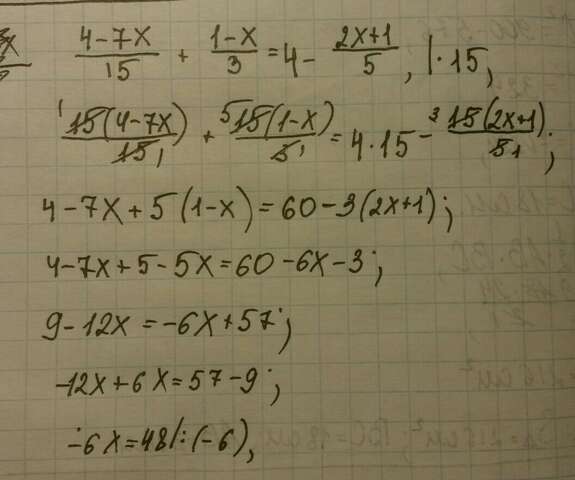 (4-7x)/15 + (1-x)/3 = 4 - (2x+1)/5, |·15,
15(4-7x)/15 + 15(1-x)/3 = 4·15 - 15(2x+1)/5;
4-7x+5(1-x)=60-3(2x+1);
4-7x+5-5x=60-6x-3;
9-12x=-6x+57;
-12x+6x=57-9;
-6x=48|:(-6),